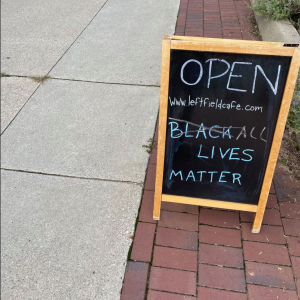 OPEN
www.leftfieldcafe.com
BLACK ALL
LIVES
MATTER